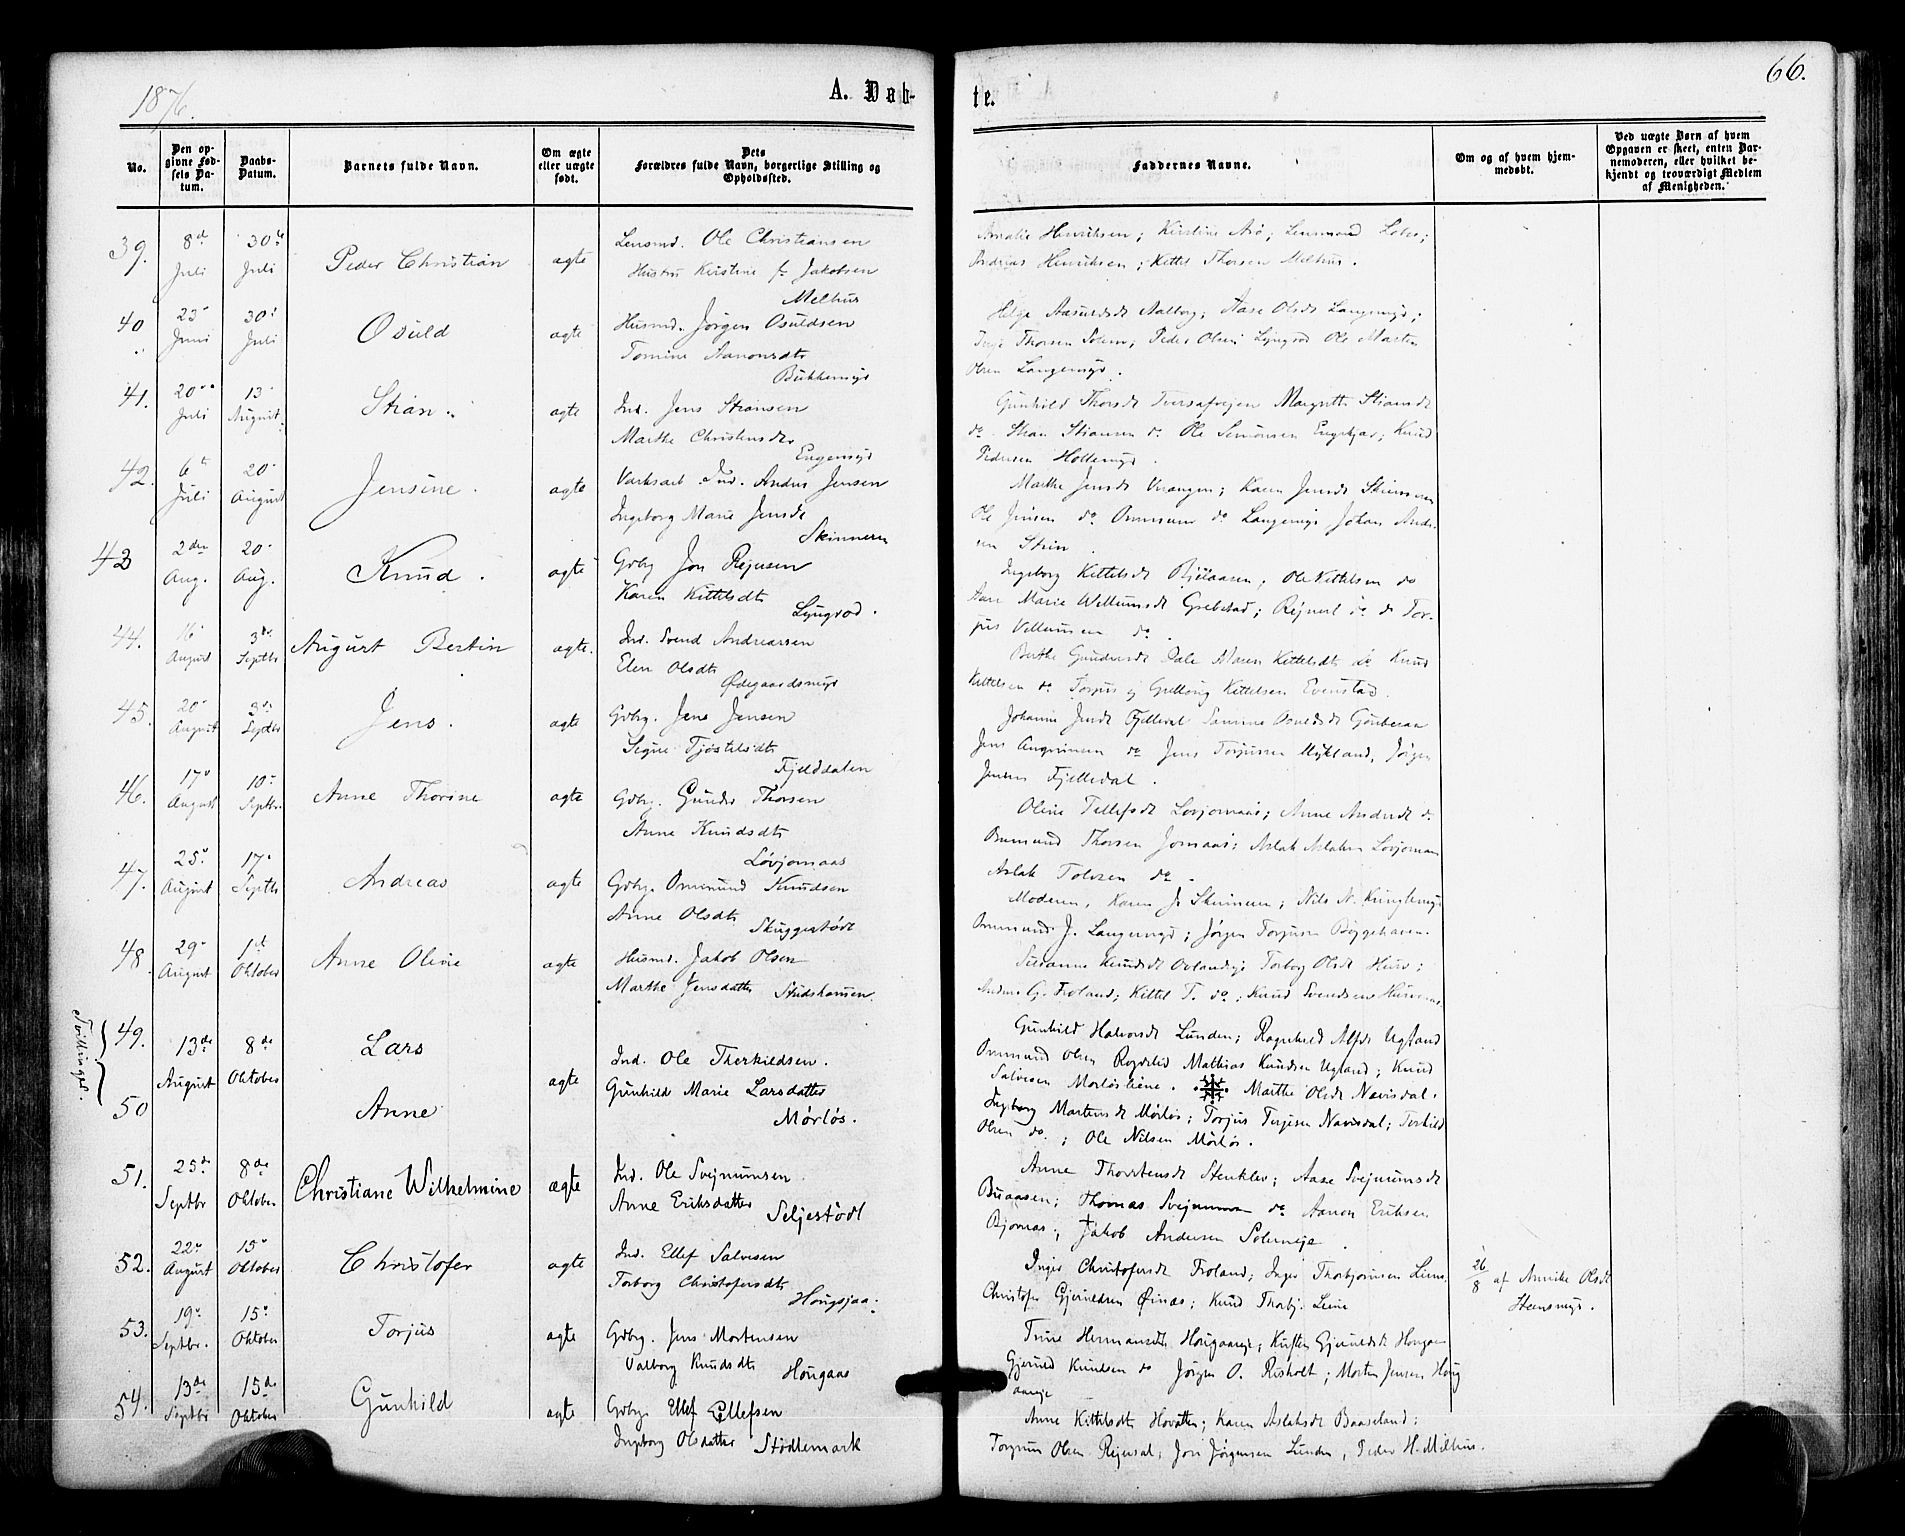 1876.
A. Døb-
te.
66.
No.
Den op-
givne Fød-
sels Da-
tum.
Daabs-
Datum.
Barnets fulde Navn.
Om ægte
eller uægte
født.
Dets
Forældres fulde Navn, borgerlige Stilling og
Opholdssted.
Faddernes Navne.
Om og af hvem hjem-
medøbt.
Ved uægte Børn af hvem
Opgaven er skeet, enten Bar-
nemoderen, eller hvilket be-
kjendt og troværdigt Medlem
af Menigheden.
39. 8de Juli 30te Juli Peder Christian ægte
Lensmd. Ole Christiansen
Hustru Kirstine f. Jakobsen
Melhus
Amalie Henriksen; Kirstine Arø; Lensmand
Andreas Henriksen; Kittel Thorsen Melhus.
40 23 Juni 30 Juli Osuld ægte
Husmd. Jørgen Osuldsen
Tomine Aanonsdtr
Bukkemyr
Helje Aasuldsdt Aalborg; Aase Olsdt Langemyr;
Thorsen Solem; Peder Olsen Lyngrod Ole Martin
Olsen Langemyr.
41. 20 Juli 13 August. Stian ægte
Ind. Jens Stiansen
Marthe Christensdtr
Engemyr
Gunhild Thorsdt Margrethe Stiansdt
do. Stian Stiansen do Ole Simonsen Engekjær; Knud
Pedersen Holtemyr.
42. 6te Juli 20 August Jensine. ægte
Ind. Anders Jensen
Ingeborg Marie Jensdt
Skinneren
Marthe Jensdt Karen Jensdt Skinneren
Ole Jensen do Ommund do Langemyr Johan Andr-
sen
43 2den Aug. 20 Aug. Knud. ægte
Grbg Jon Rejersen
Karen Kittelsdtr
Lyngrod.
Ingeborg Kittelsdt Ole Kittelsen do
Aase Marie Willumsdt Grebstad; Rejnert do do Tor-
jus Villumsen do.
44. 16 August 3de Septbr August Bertin ægte.
Ind. Svend Andreassen
Elen Olsdtr
Ødegaardsmyr
Berthe Gundersdt Dale Maren Kittelsdt do Knud
Kittelsen do Torjus og Kittelsen Evenstad.
45. 20 August 3de Septbr Jens. ægte
Grbg. Jens Jensen
Signe Tjøstelsdtr
Fjelddalen
Johanne Jensdt Fjelldal
Jens do Jens Torjussen Mykland, Jørgen
Jensen Fjelledal.
46. 17 August 10 Septbr. Anne Thorine ægte
Grbg. Gunder Thorsen
Anne Knudsdtr
Løvjomaas
Oline Tellefsdt Lovjomaas; Anne Andersdt do
Ommund Thorsen Jomaas; Aslak Aslaksen Lovjomaas
Aslak Tolvsen do.
47. 25 August 17 Septbr Andreas ægte
Grbg. Ommund Knudsen
Anne Olsdtr
Skuggestødt
Moderen, Karen J. Skinneren; Nils N.
Ommund J. Langemyr; Jørgen Torjusen Byggehaven.
48 29 August 1st Oktober Anne Olivie ægte
Husmd. Jakob Olsen
Marthe Jensdatter Studshousen.
Susanne Knudsdt Torborg Olsdt
Anders G. Froland; Kittel T. do; Knud Svendsen
Tvillinger.
49. 13de August 8de Oktober Lars ægte
Ind. Ole Therkildsen.
Gunhild Marie Larsdatter
Mørløs.
50 Anne
Gunhild Halvorsdt Lunden; Ragnhild Alfsdt Ugland
Ommund Olsen Mathias Knudsen Ugland; Knud
Salvesen Mørløsheine. Marthe Olsdt Navisdal.
Ingeborg Martensdt Mørløs; Torjus Terjesen Navisdal; Terkild
Olsen do.; Ole Nilsen Mørløs.
51. 25de Septbr 8de Oktober Christiane Wilhelmine ægte
Ind. Ole Svejnumsen
Anne Eriksdatter Seljestødt
Anne Thorstensdt Stenklev; Aase Svejnumsdt
Buaasen; Thomas Svejnumsen do Aanon Eriksen
Bjornas; Jakob Andersen Solemeje.
52. 22 August 15 Oktober Christofer ægte
Ind. Ellef Salvesen
Torborg Christofersdtr
Hougsjaa.
Inger Christofersdt Froland; Inger Thorbjørnsen
Christofer Gjeruldsen Øinæs; Knud Thorbj. Leine
26/8 af Annike Olsdt
Stensmyr.
53. 19 Septbr. 15 Oktober Torjus ægte
Grbg. Jens Mortensen
Valborg Knudsdtr Hougaas
Trine Hermansdt Hougaaseje; Kirsten Gjeruldsdt Hougaas
Gjeruld Knudsen do Jørgen O. Risholt; Morten Jensen Houg
aaseje
54. 13de Septbr 15de Oktober Gunhild ægte
Grbg. Ellef Ellefsen
Ingeborg Olsdatter Stødlemark
Anne Kittelsdt Hovatten; Karen Aslaksdt Baaseland;
Torgrim Olsen Rejersal; Jon Jørgensen Lunden, Peder H. Milhus.